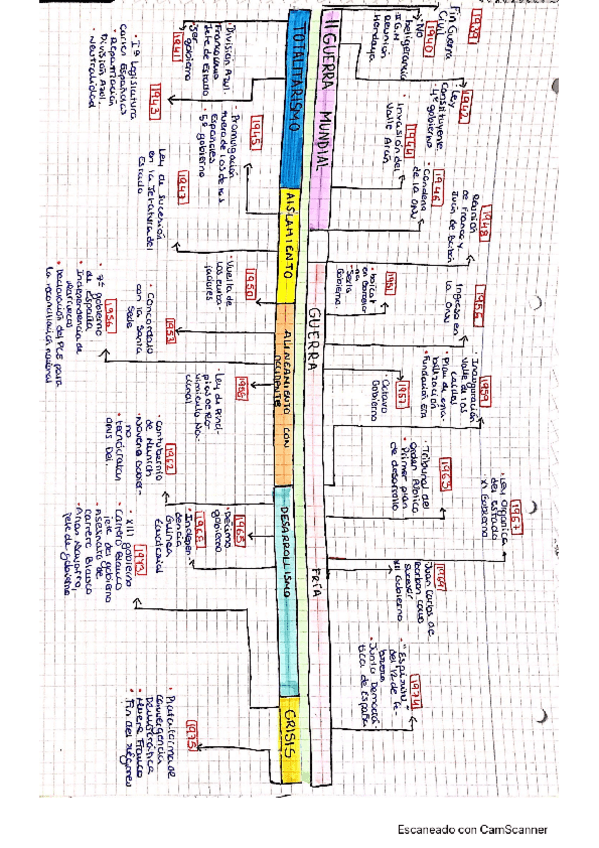 1939
Fin Guerra
Civil
1940
· No
beligerancia
II G.M
· Reunión
Hendaya
1942
· Ley
constituyente
· 4º gobierno
1944
· Invasión del
Valle Arán
1946
· Condena
de la ONU
1948
Reunión
de Franco y
Juan de Borbón
1951
· boicot
Gobierno
1955
Ingreso en
la ONU
1957
· Octavo
Gobierno
1959
· Inauguración
Valle de los
caídos
· Plan de
bilización
· Fundación ETA
1963
· Tribunal del
Orden Público
· Primer plan
de desarrollo
1967
· Ley Orgánica
del Estado
· XI Gobierno
1969
Juan Carlos de
Borbón como
sucesor
XII Gobierno
1974
· "Espíritu"
del 12 de fe-
brero
· Junta Democrá-
tica de España
II GUERRA MUNDIAL
GUERRA
FRÍA
TOTALITARISMO
AISLAMIENTO
ALINEAMIENTO CON
OCCIDENTE
DESARROLLISMO
CRISIS
1941
· División Azul.
· Franco
Jefe de Estado
gobierno
1943
· Iª Legislatura
cortes españolas
· Repatriación
División Azul.
· Neutralidad
1945
· Promulgación
fuero de los
españoles
· 5º gobierno
1947
Ley de Sucesión
en la Jefatura del
Estado
1950
· Vuelta de
los emba-
jadores
1953
· Concordato
con la Santa
Sede
1956
· 7º gobierno
de España
· Independencia de
Marruecos
· Declaración del PCE para
la reconciliación nacional
· Ley de Prin-
cipios del
vimiento Na-
cional
1962
· Contubernio
de Munich
· Noveno Gobier-
no
· tecnócratas
OPUS DEI.
1965
Décimo
gobierno
1968
· Indepen-
dencia
Guinea
Ecuatorial
1973
· XIII gobierno
Carrero Blanco
jefe del gobierno
· Asesinato de
Carrero Blanco
· Arias Navarro,
jefe de gobierno
1975
· Plataforma de
convergencia
Democrática
· Muere Franco
· Fin del régimen
Escaneado con CamScanner